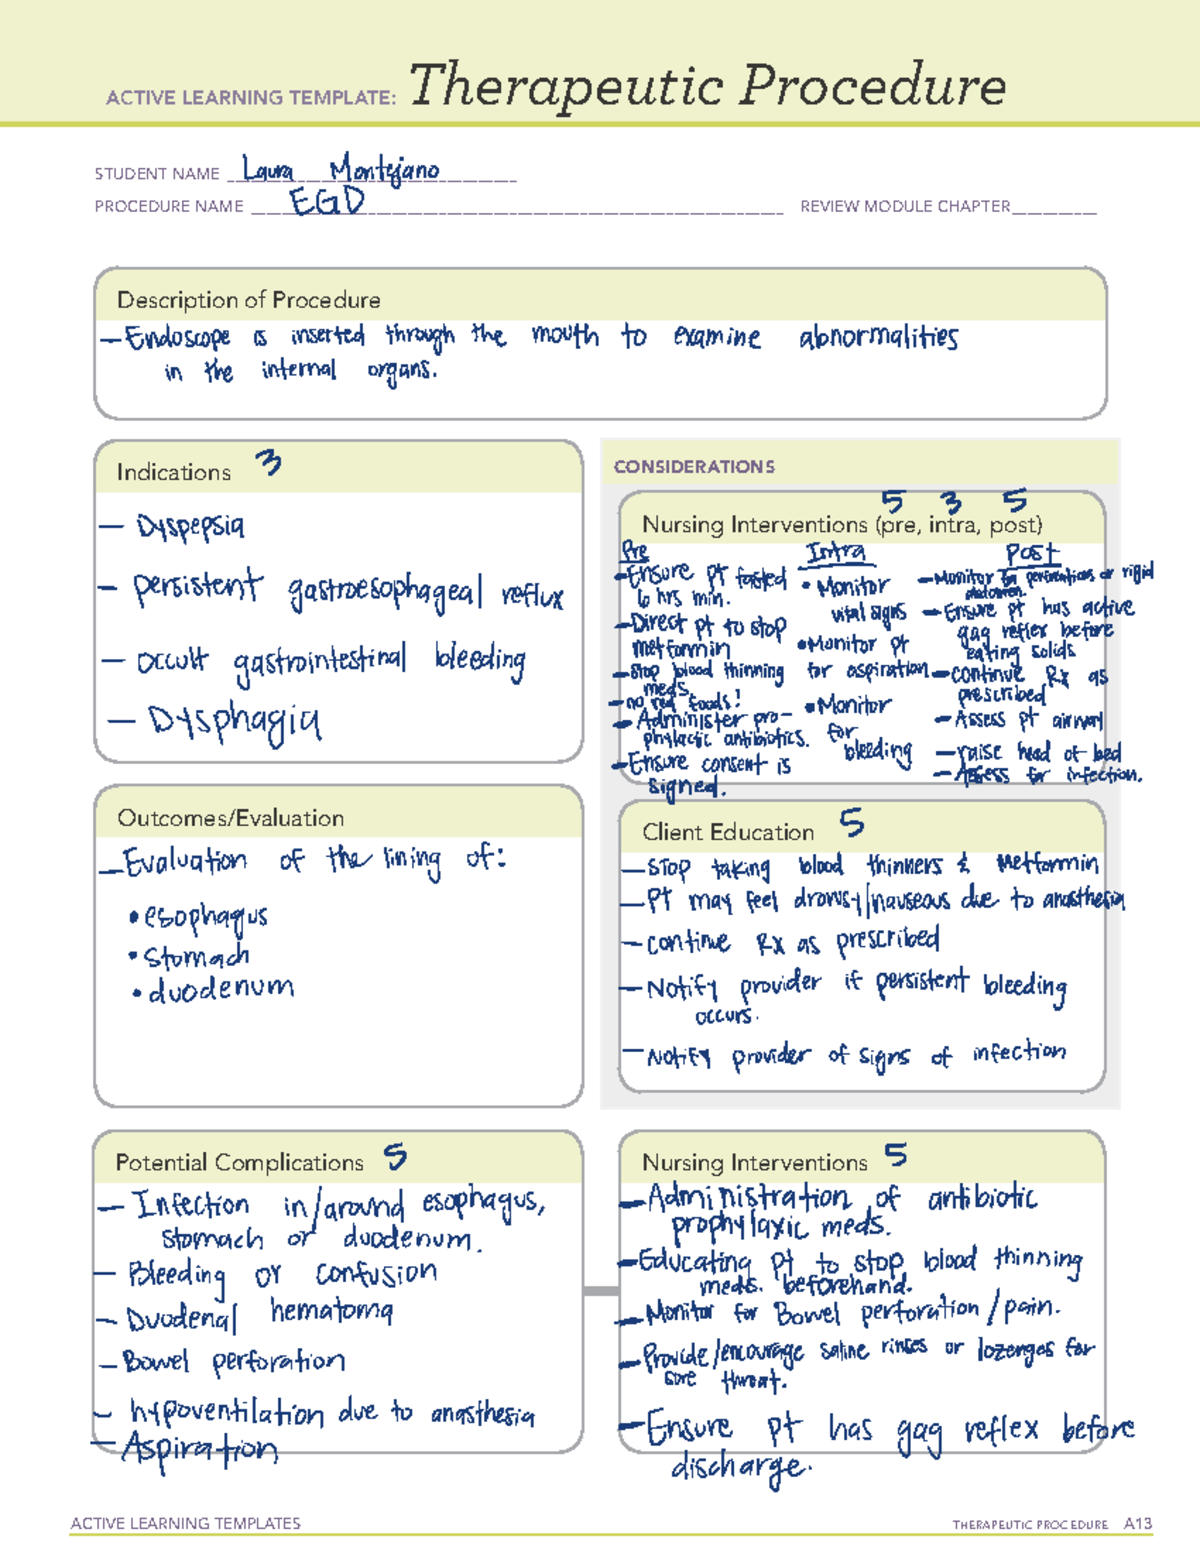 ACTIVE LEARNING TEMPLATE: Therapeutic Procedure
STUDENT NAME Laura Montejano
PROCEDURE NAME EGD REVIEW MODULE CHAPTER
Description of Procedure
– Endoscope is inserted through the mouth to examine abnormalities
in the internal organs.
Indications 3
– Dyspepsia
– persistent gastroesophageal reflux
– occult gastrointestinal bleeding
– Dysphagia
CONSIDERATIONS
5 3 5
Nursing Interventions (pre, intra, post)
Pre
– Ensure pt fasted
6 hrs min.
– Direct pt to stop
metformin
– stop blood thinning
meds.
– no red foods!
– Administer pro-
phylactic antibiotics.
– Ensure consent is
signed.
Intra
• Monitor
vital signs
• Monitor pt
for aspiration
• Monitor
for
bleeding
Post
– Monitor for perforations or rigid
abdomen.
– Ensure pt has active
gag reflex before
eating solids
– continue Rx as
prescribed
– Assess pt airway
– raise head of bed
– Assess for infection.
Outcomes/Evaluation
– Evaluation of the lining of:
• esophagus
• stomach
• duodenum
Client Education 5
– STOP taking blood thinners & Metformin
– PT may feel drowsy/nauseous due to anasthesia
– continue Rx as prescribed
– Notify provider if persistent bleeding
occurs.
– Notify provider of signs of infection
Potential Complications 5
– Infection in/around esophagus,
stomach or duodenum.
– Bleeding or confusion
– Duodenal hematoma
– Bowel perforation
– hypoventilation due to anasthesia
– Aspiration
Nursing Interventions 5
– Administration of antibiotic
prophylaxic meds.
– Educating pt to stop blood thinning
meds. beforehand.
– Monitor for Bowel perforation/pain.
– Provide/encourage saline rinses or lozenges for
sore throat.
– Ensure pt has gag reflex before
discharge.
ACTIVE LEARNING TEMPLATES
THERAPEUTIC PROCEDURE A13